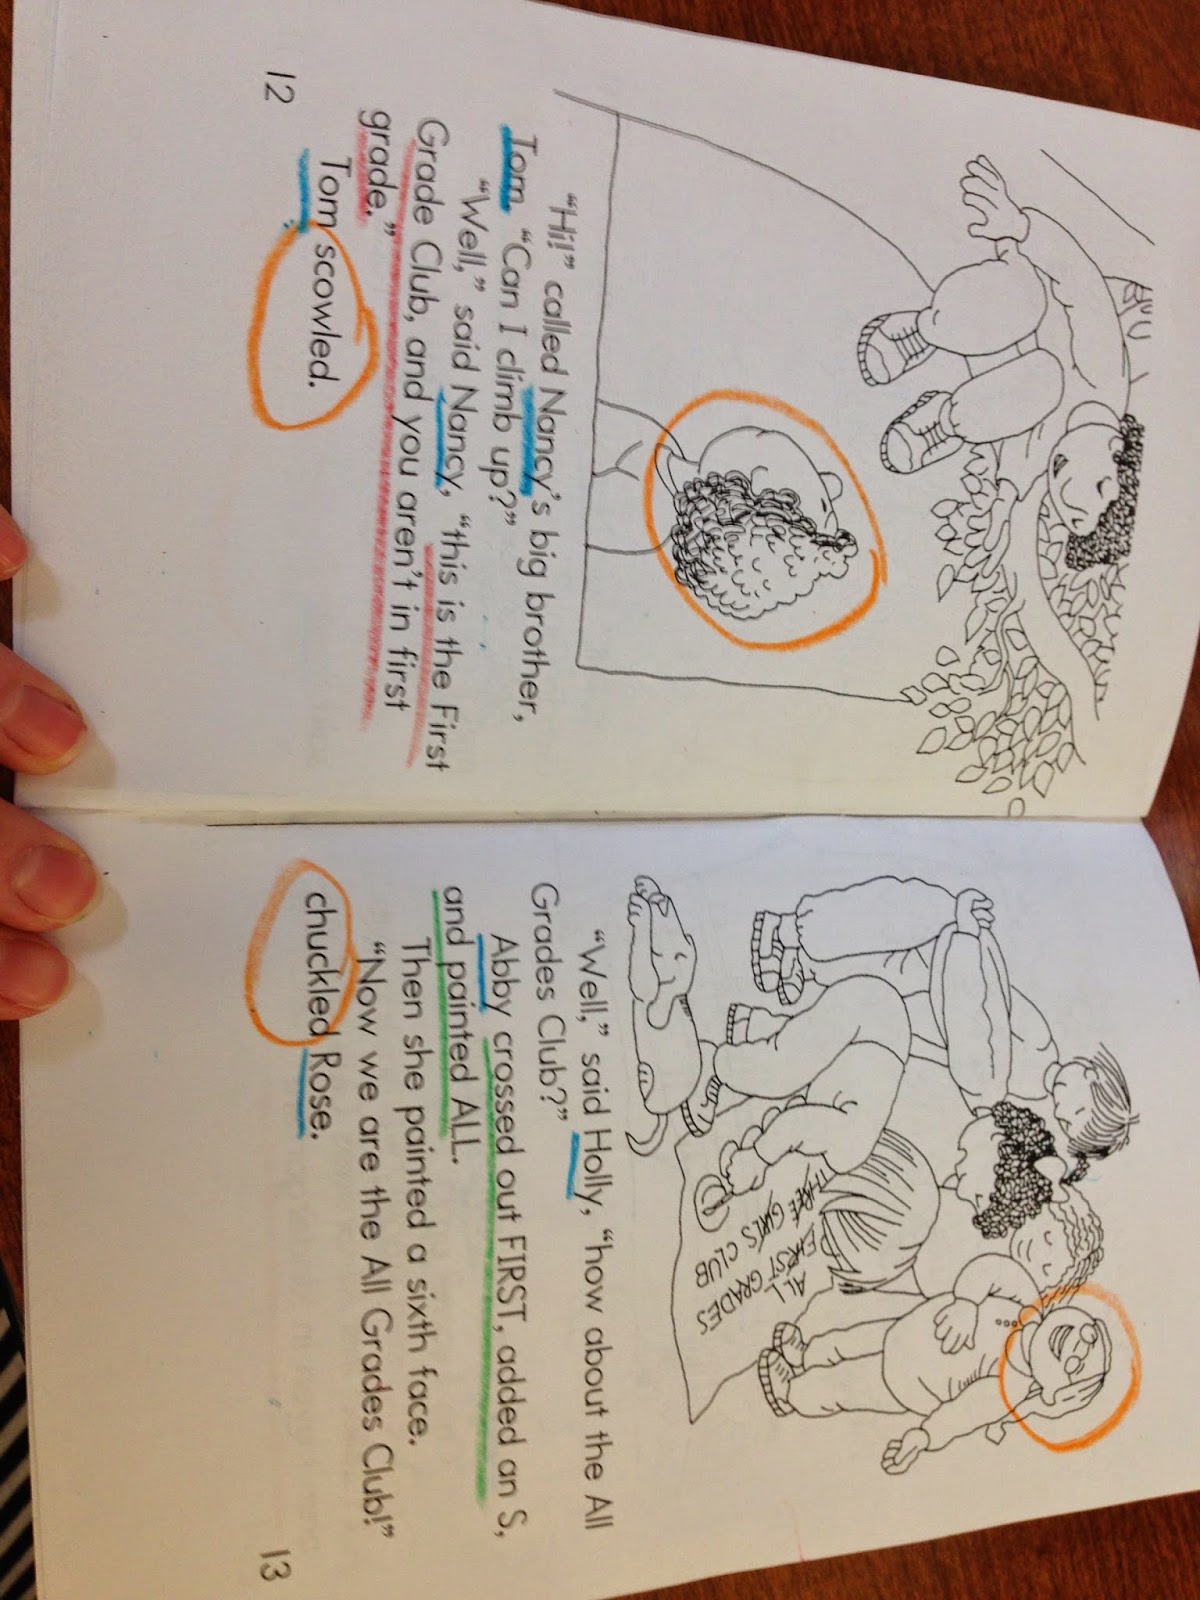 "Hi!" called Nancy's big brother,
Tom. "Can I climb up?"
"Well," said Nancy, "this is the First
Grade Club, and you aren't in first
grade."
Tom scowled.
12
THREE GIRLS CLUB
FIRST GRADES
ALL
"Well," said Holly, "how about the All
Grades Club?"
Abby crossed out FIRST, added an S,
and painted ALL.
Then she painted a sixth face.
"Now we are the All Grades Club!"
chuckled Rose.
13